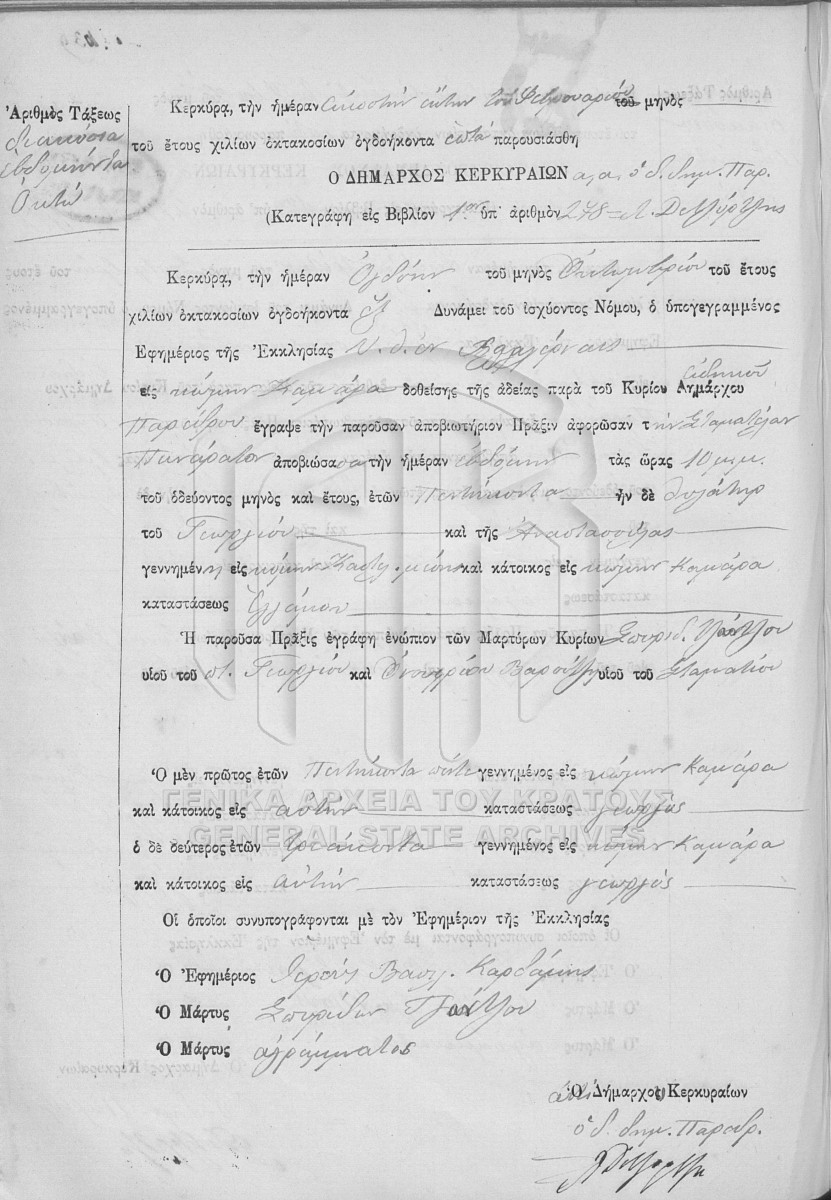 Ἀριθμὸς Τάξεως
διακόσια
ἑβδομήντα
ὀκτώ
Κερκύρα, τὴν ἡμέραν εἰκοστὴν ἕκτην τοῦ Φεβρουαρίου τοῦ μηνὸς
τοῦ ἔτους χιλίων ὀκτακοσίων ὀγδοήκοντα ἑπτά παρουσιάσθη
Ο ΔΗΜΑΡΧΟΣ ΚΕΡΚΥΡΑΙΩΝ α.α. ὁ δ. δημ. Παρ.
(Κατεγράφη εἰς Βιβλίον 1ον ὑπ' ἀριθμὸν 278
Κερκύρα, τὴν ἡμέραν Ὀγδόην τοῦ μηνὸς Ὀκτωμβρίου τοῦ ἔτους
χιλίων ὀκτακοσίων ὀγδοήκοντα ἕξ Δυνάμει τοῦ ἰσχύοντος Νόμου, ὁ ὑπογεγραμμένος
Ἐφημέριος τῆς Ἐκκλησίας Υ. Θ. ἐν Βλαχέρναις
εἰς κώμην Καμάρα δοθείσης τῆς ἀδείας παρὰ τοῦ Κυρίου Δημάρχου εἰδικοῦ
Παρέδρου ἔγραψε τὴν παροῦσαν ἀποβιωτήριον Πρᾶξιν ἀφορῶσαν τ ὴν Σταματέλαν
Πανάρετον ἀποβιώσασα τὴν ἡμέραν ἑβδόμην τὰς ὥρας 10 μ.μ.
τοῦ ὁδεύοντος μηνὸς καὶ ἔτους, ἐτῶν Πεντήκοντα ἦν δὲ θυγάτηρ
τοῦ Γεωργίου καὶ τῆς Ἀναστασούλας
γεννημένη εἰς κώμην καὶ κάτοικος εἰς κώμην Καμάρα
καταστάσεως
Ἡ παροῦσα Πρᾶξις ἐγράφη ἐνώπιον τῶν Μαρτύρων Κυρίων Σπυριδ.
υἱοῦ τοῦ ποτ. Γεωργίου καὶ Ὀνουφρίου Βαρούχα υἱοῦ τοῦ Σταματίου
Ὁ μὲν πρῶτος ἐτῶν Πεντήκοντα πέντε γεννημένος εἰς κώμην Καμάρα
καὶ κάτοικος εἰς αὐτήν καταστάσεως γεωργός
ὁ δὲ δεύτερος ἐτῶν τριάκοντα γεννημένος εἰς κώμην Καμάρα
καὶ κάτοικος εἰς αὐτήν καταστάσεως γεωργός
Οἱ ὁποῖοι συνυπογράφονται μὲ τὸν Ἐφημέριον τῆς Ἐκκλησίας
Ὁ Ἐφημέριος Ἱερεύς Βασιλ. Καρδάμης
Ὁ Μάρτυς Σπυρίδων
Ὁ Μάρτυς ἀγράμματος
Ὁ Δήμαρχος Κερκυραίων
ὁ δ. δημ. Παρεδρ.
ΓΕΝΙΚΑ ΑΡΧΕΙΑ ΤΟΥ ΚΡΑΤΟΥΣ
GENERAL STATE ARCHIVES